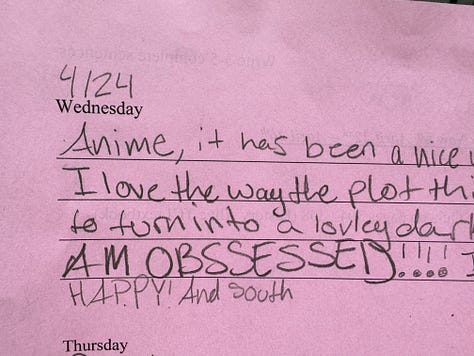 4/24
Wednesday
Anime, it has been a nice
I love the way the plot thi
to turn into a lovley dark
AM OBSSESSED!!!! I
HAPPY! And South
Thursday